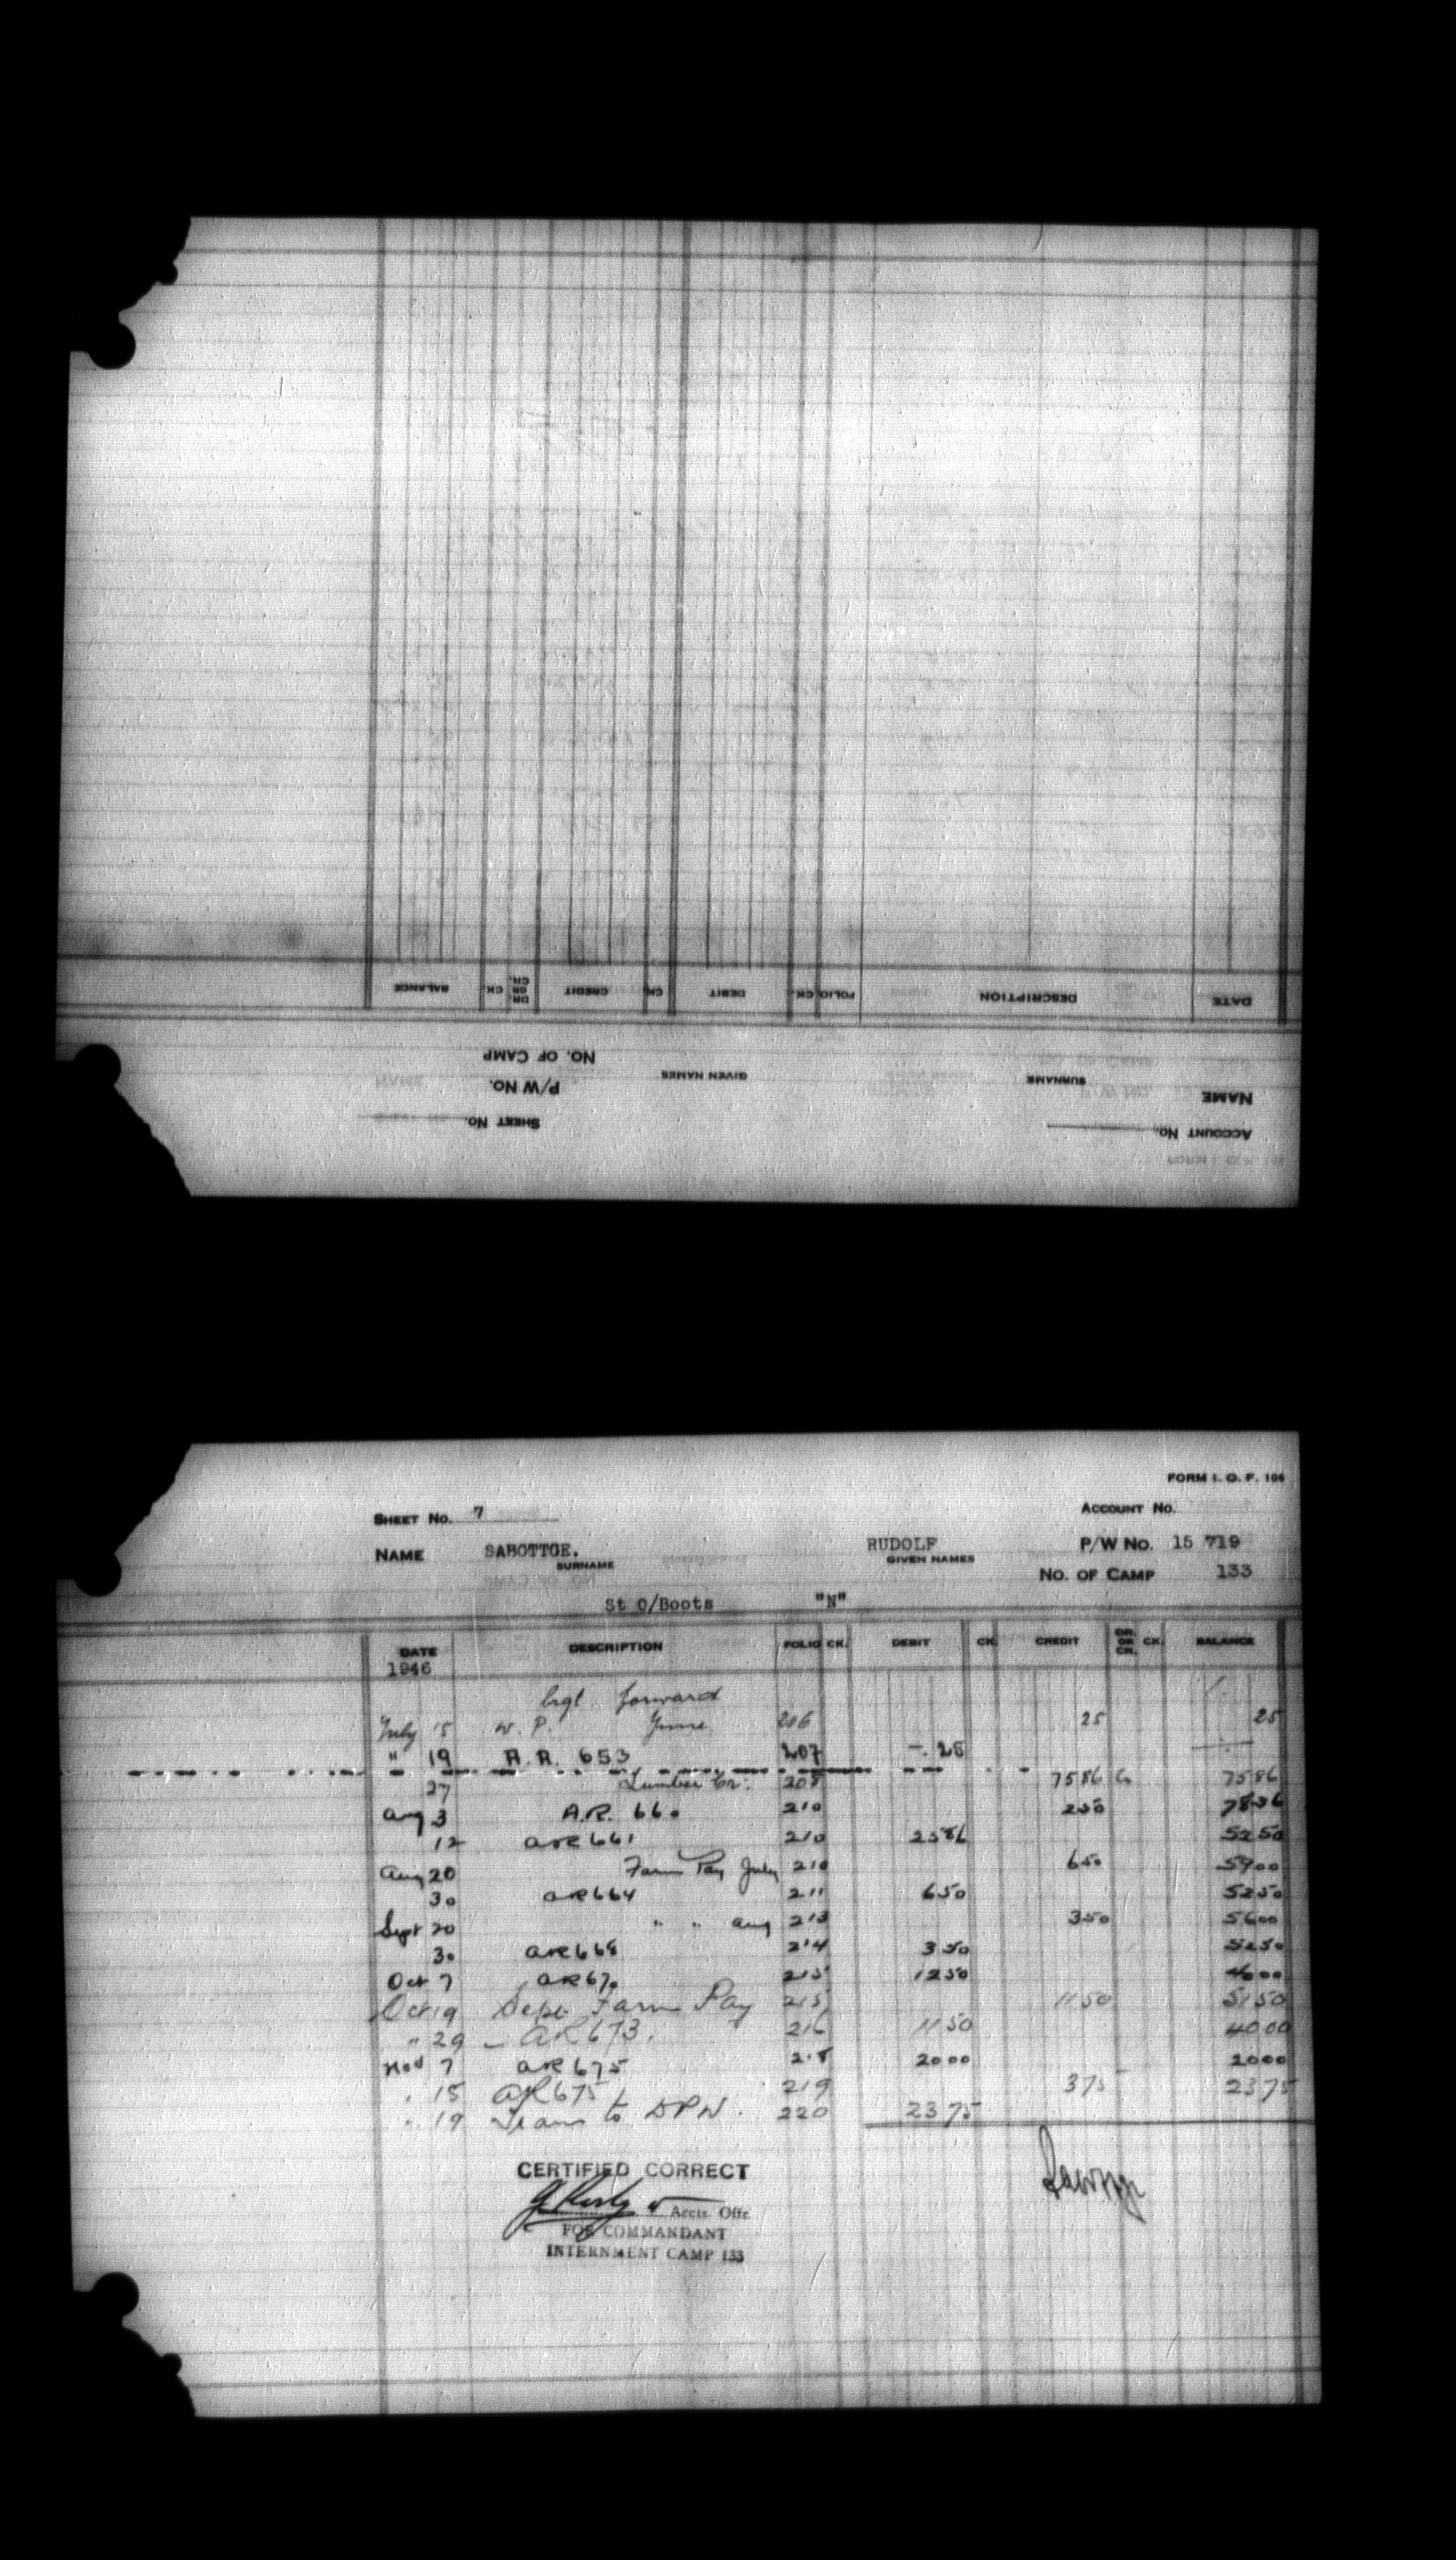 ACCOUNT No.
SHEET No.
NAME
SURNAME
GIVEN NAMES
P/W No.
NO. OF CAMP
DATE
DESCRIPTION
FOLIO CK. DEBIT CK. CREDIT DR. OR CR. CK. BALANCE
FORM I. O. F. 106
SHEET No. 7 ACCOUNT No.
NAME SABOTTGE. RUDOLF P/W No. 15 719
SURNAME GIVEN NAMES
NO. OF CAMP 133
St O/Boots "N"
DATE DESCRIPTION FOLIO CK. DEBIT CK. CREDIT DR. OR CR. CK. BALANCE
1946
brgt forward
July 15 W. P. June 206 25 25
" 19 A.R. 653 207 -. 25
27 Lumber Cr. 208 7586 7586
Aug 3 A.R. 660 210 250 7836
12 AR 661 210 2586 5250
Aug 20 Farm Pay July 210 650 5900
30 AR 664 211 650 5250
Sept 20 " " Aug 213 350 5600
30 AR 668 214 350 5250
Oct 7 AR 670 215 1250 4000
Oct 19 Sept Farm Pay 215 1150 5150
" 29 - AR 673. 216 1150 4000
Nov 7 AR 675 218 2000 2000
" 15 AR 675 219 375 2375
" 19 Trans to DPW. 220 2375
CERTIFIED CORRECT
Accts. Offr.
FOR COMMANDANT
INTERNMENT CAMP 133